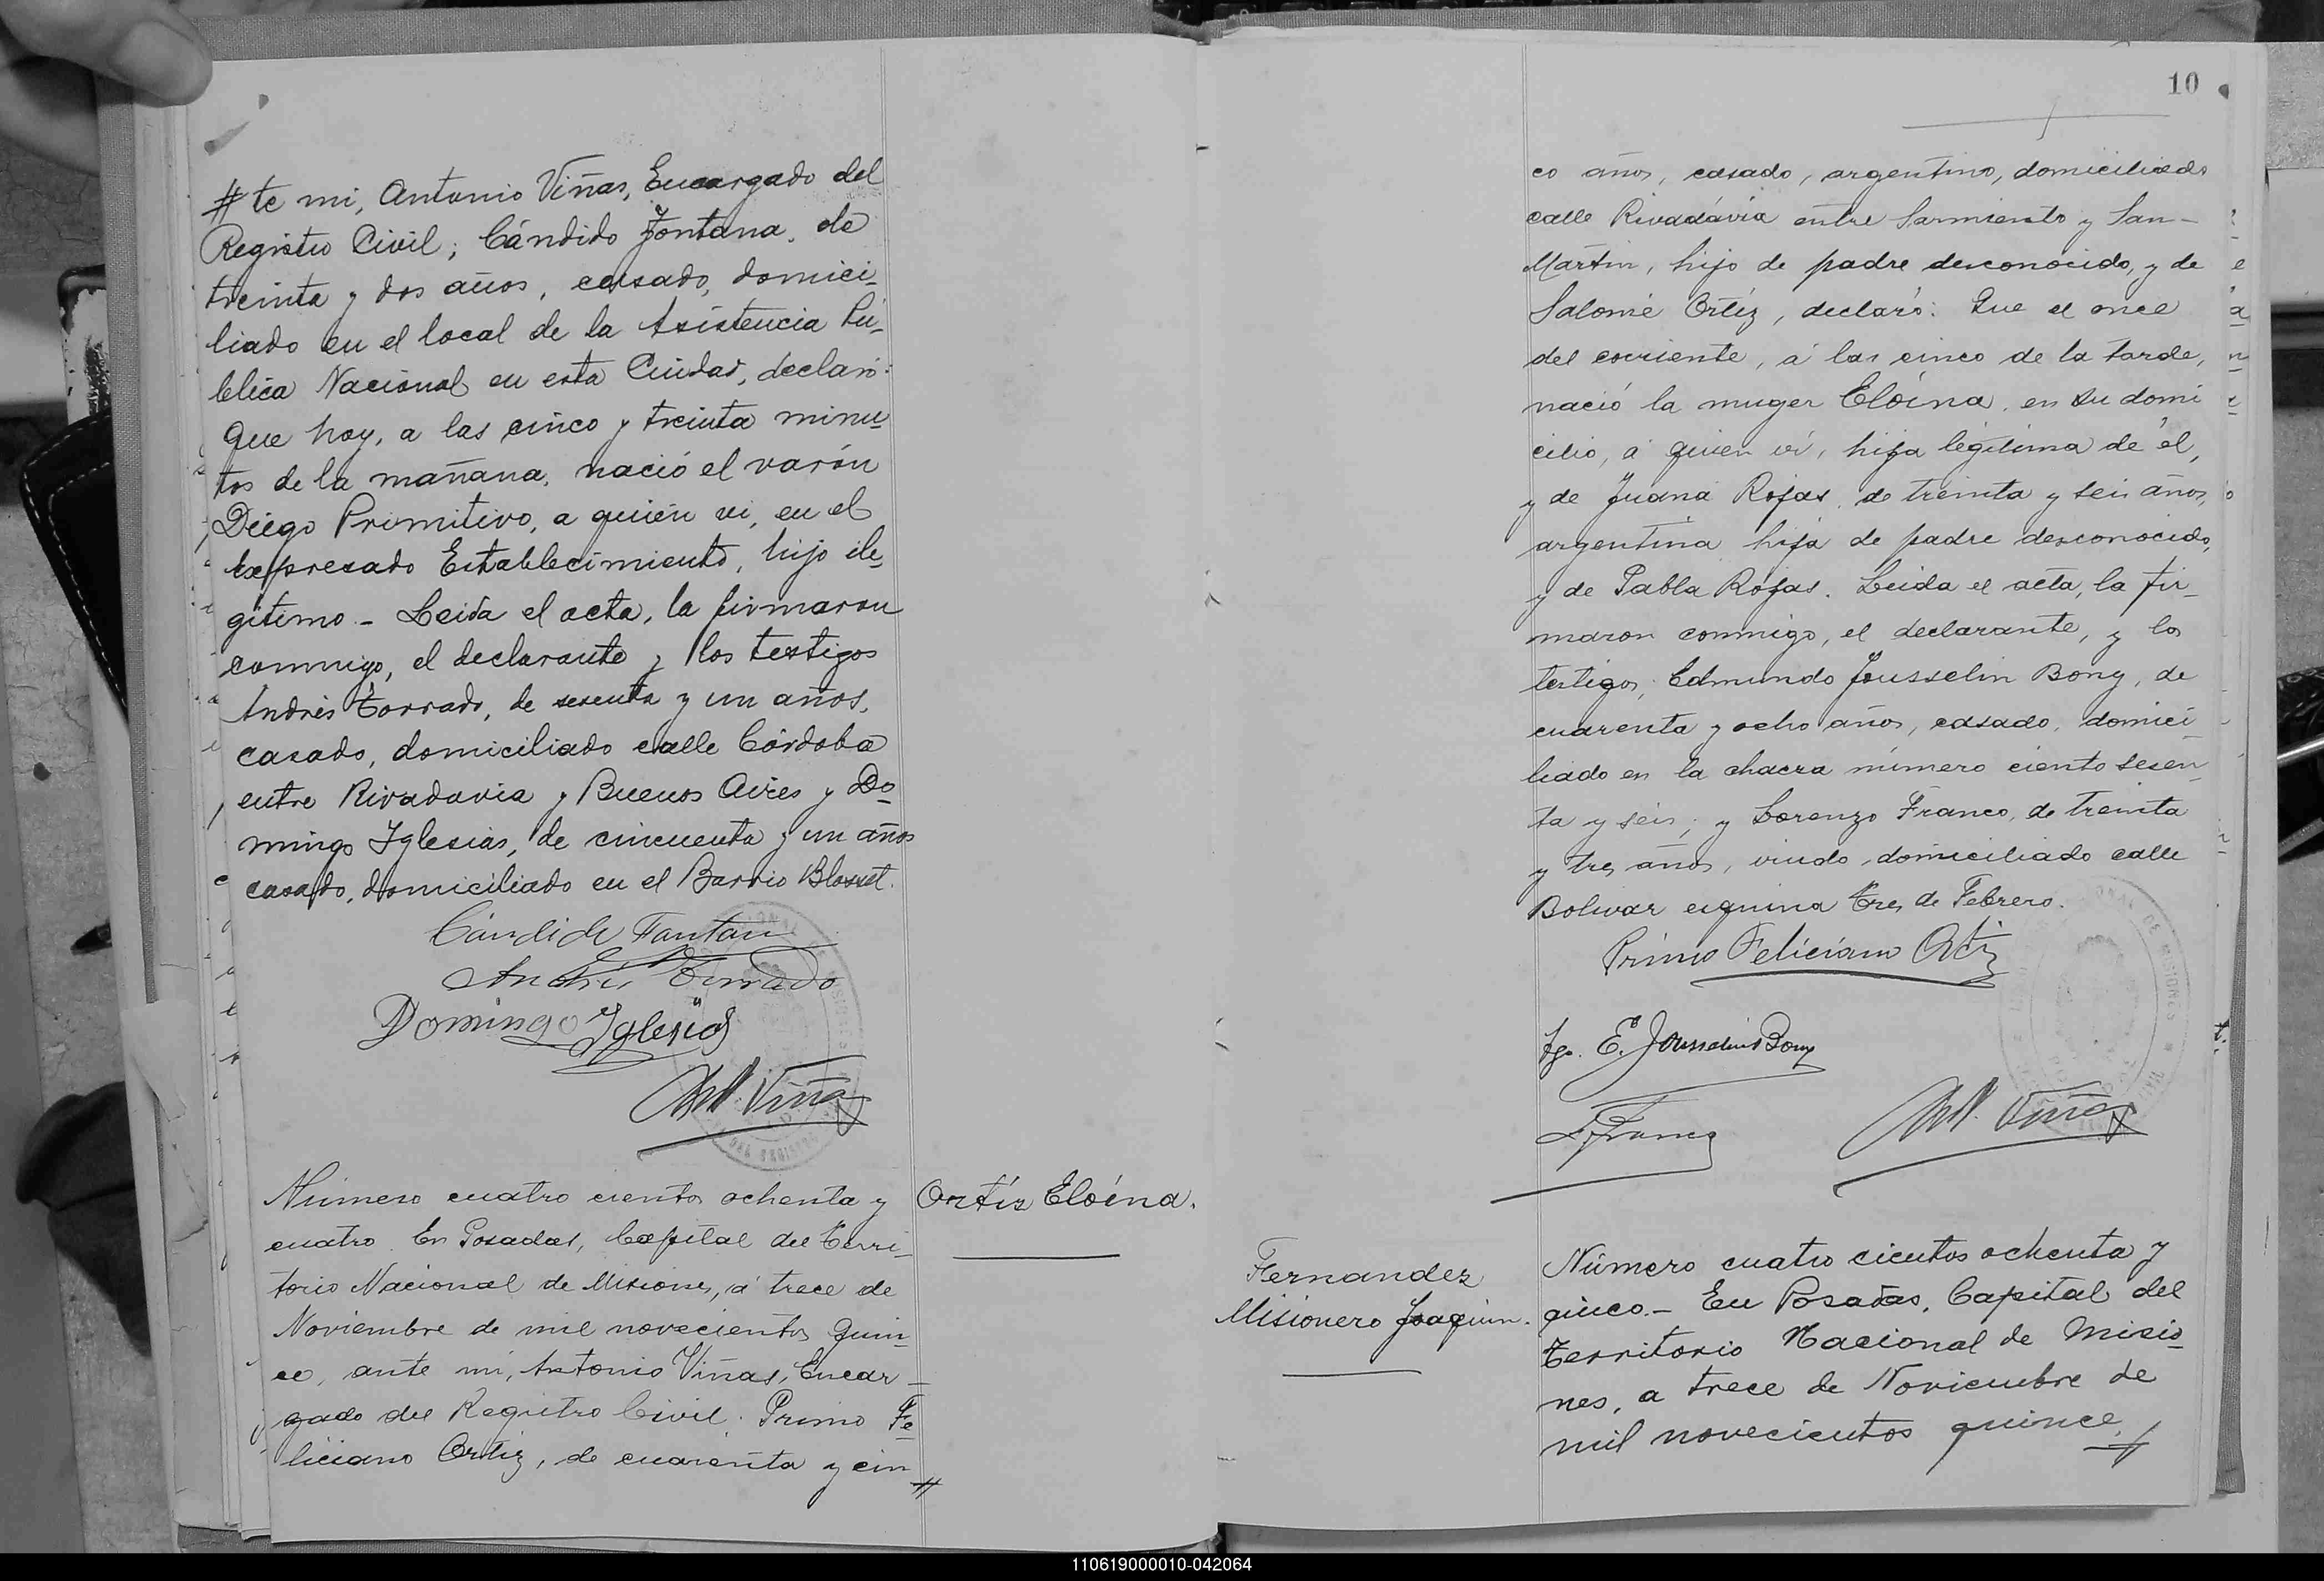 # te mi, Antonio Viñas, Encargado del
Registro Civil; Cándido Fontana, de
treinta y dos años, casado, domici-
liado en el local de la Asistencia Pú-
blica Nacional en esta Ciudad, declaró:
Que hoy, a las cinco y treinta minu-
tos de la mañana, nació el varón
Diego Primitivo, a quien vi, en el
expresado Establecimiento, hijo ile-
gítimo. - Leida el acta, la firmaron
conmigo, el declarante y los testigos
Andrés Torrado, de sesenta y un años,
casado, domiciliado calle Córdoba
entre Rivadavia y Buenos Aires y Do-
mingo Iglesias, de cincuenta y un años
casado, domiciliado en el Barrio Blosset.
Cándido Fontan
Andrés Torrado
Domingo Iglesias
Ant. Viñas
Número cuatro cientos ochenta y
cuatro. En Posadas, Capital del Terri-
torio Nacional de Misiones, á trece de
Noviembre de mil novecientos quin-
ce, ante mi, Antonio Viñas, Encar-
gado del Registro Civil: Primo Fe-
liciano Ortiz, de cuarenta y cin #
Ortíz Eloína.
10
co años, casado, argentino, domiciliado
calle Rivadávia entre Sarmiento y San-
Martin, hijo de padre desconocido, y de
Salomé Ortíz, declaró: Que el once
del corriente, á las cinco de la tarde,
nació la muger Eloína, en su domi
cilio, á quien ví, hija legítima de él,
y de Juana Rojas, de treinta y seis años,
argentina hija de padre desconocido,
y de Pabla Rojas. Leida el acta, la fir-
maron conmigo, el declarante, y los
testigos; Edmundo Jousselin Bony, de
cuarenta y ocho años, casado, domici-
liado en la chacra número ciento sesen-
ta y seis; y Lorenzo Franco, de treinta
y tres años, viudo, domiciliado calle
Bolivar esquina Tres de Febrero.
Primo Feliciano Ortiz
Tgo. E. Jousselin Bony
L. Franco
Ant. Viñas
Fernandez
Misionero Joaquin.
Número cuatro cientos ochenta y
cinco. - En Posadas, Capital del
Territorio Nacional de Misio-
nes, a trece de Noviembre de
mil novecientos quince, #
110619000010-042064